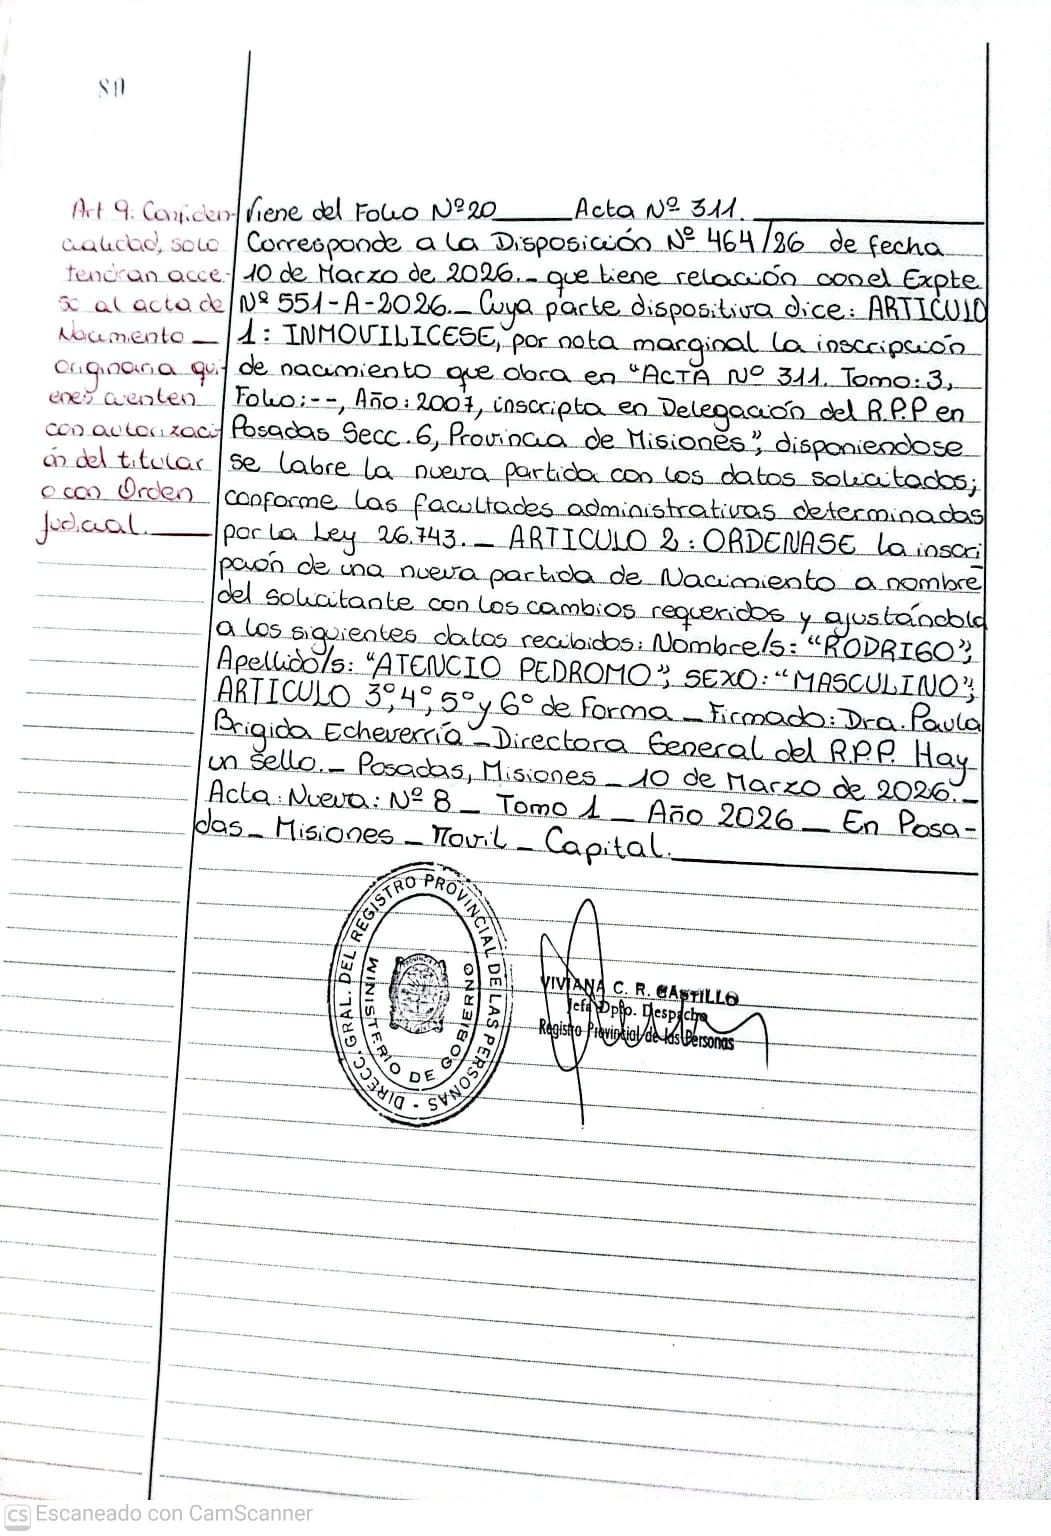 80
Art 9: Confiden-
cialidad, solo
tendran acce-
so al acta de
Nacimiento _
originaria qui-
enes cuenten
con autorizaci
ón del titular
o con Orden
Judicial.
Viene del Folio Nº20 ____ Acta Nº 311.
Corresponde a la Disposición Nº 464/26 de fecha
10 de Marzo de 2026._ que tiene relación con el Expte
Nº 551-A-2026._ Cuya parte dispositiva dice: ARTICULO
1: INMOVILICESE, por nota marginal la inscripción
de nacimiento que obra en "ACTA Nº 311. Tomo: 3,
Folio: --, Año: 2007, inscripta en Delegación del R.P.P en
Posadas Secc. 6, Provincia de Misiones", disponiendose
se labre la nueva partida con los datos solicitados;
conforme las facultades administrativas determinadas
por la Ley 26.743. _ ARTICULO 2: ORDENASE la inscri
pción de una nueva partida de Nacimiento a nombre
del solicitante con los cambios requeridos y ajustándola
a los siguientes datos recibidos: Nombre/s: "RODRIGO",
Apellido/s: "ATENCIO PEDROMO", SEXO: "MASCULINO",
ARTICULO 3º, 4º, 5º y 6º de Forma _ Firmado: Dra. Paula
Brigida Echeverría _ Directora General del R.P.P. Hay
un sello._ Posadas, Misiones _ 10 de Marzo de 2026._
Acta Nueva: Nº 8 _ Tomo 1 _ Año 2026 _ En Posa-
das _ Misiones _ Movil _ Capital.
DIRECC. GRAL. DEL REGISTRO PROVINCIAL DE LAS PERSONAS -
MINISTERIO DE GOBIERNO
VIVIANA C. R. CASTILLO
Jefa Dpto. Despacho
Registro Provincial de las Personas
CS Escaneado con CamScanner